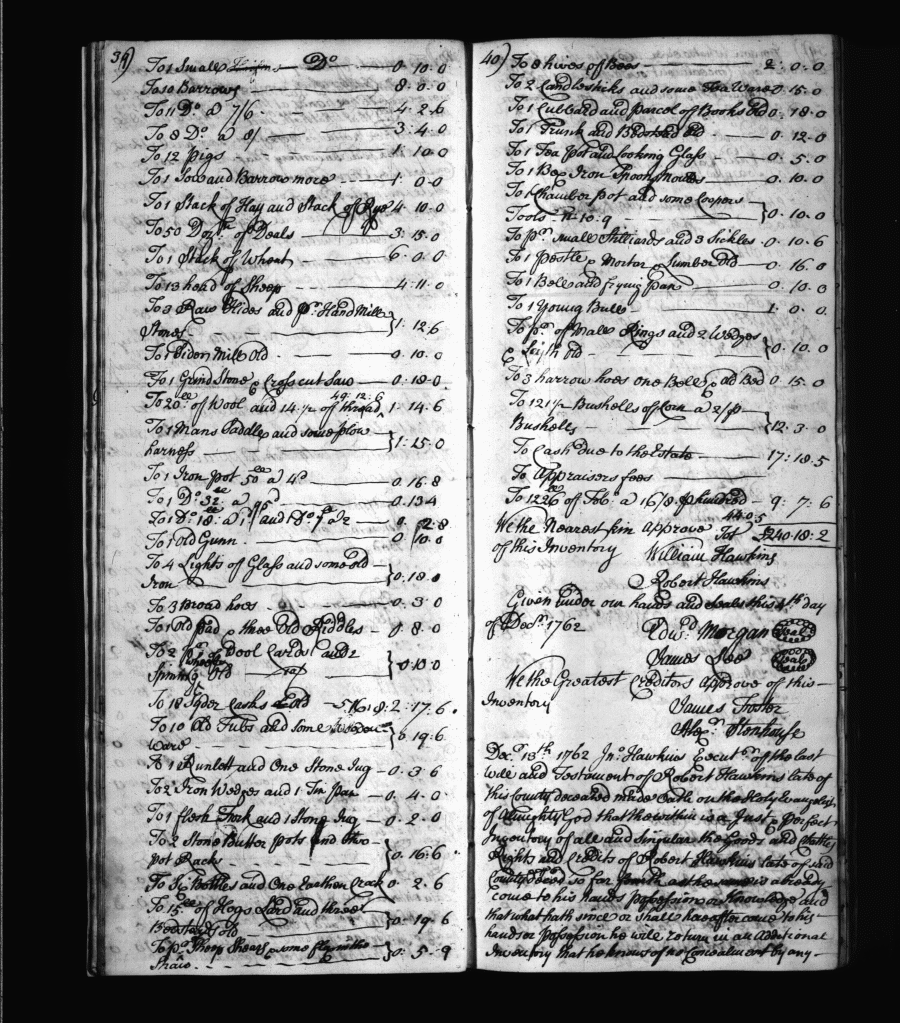 39)
To 1 Small Do 0. 10. 0
To 10 Barrows 8. 0. 0
To 11 Do @ 7/6 4. 2. 6
To 8 Do a 8/ 3. 4. 0
To 12 Pigs 1. 10. 0
To 1 Sow and Barrow more 1. 0. 0
To 1 Stack of Hay and Stack of Rye 4. 10. 0
To 50 Dozn of Deals 3. 15. 0
To 1 Stack of Wheat 6. 0. 0
To 13 head of Sheep 4. 11. 0
To 3 Raw Hides and pr Hand Mill
Stones } 1. 12. 6
To 1 Sider Mill Old 0. 10. 0
To 1 Grind Stone & Cross cut Saw 0. 18. 0
49. 12. 6
To 20 of Wool and 14 1/2 off thread 1. 14. 6
To 1 Mans Saddle and some plow
harness } 1. 15. 0
To 1 Iron Pot 50 a 4d 0. 16. 8
To 1 Do 32 a 5d 0. 13. 4
To 1 Do 18 a and 1 Do a 2 0. 12. 8
To 1 Old Gunn 0. 10. 0
To 4 Lights of Glass and some old
Iron } 0. 18. 0
To 3 Broad hoes 0. 3. 0
To 1 Old & three Old Riddles 0. 8. 0
To 2 pr Wool Cards and 2
Spining wheeles Old } 0. 10. 0
To 18 Syder Casks Old 2. 17. 6
To 10 Old Tubs and some
Ware } 0. 19. 6
To 1 Runlett and One Stone Jug 0. 3. 6
To 2 Iron Wedges and 1 Tin Pan 0. 4. 0
To 1 flesh Fork and 1 Stone Jug 0. 2. 0
To 2 Stone Butter Pots and two
pot Racks } 0. 16. 6
To Bottles and One Earthen Crock 0. 2. 6
To 15 of Hogs Lard and three
Bedsteads Old } 0. 19. 6
To pr Sheep Shears & some
} 0. 5. 9
40)
To 8 hives of Bees 2. 0. 0
To 2 Candlesticks and some Tea Ware 0. 15. 0
To 1 Cubbard and Parcel of Books Old 0. 18. 0
To 1 Trunk and Bedstead Old 0. 12. 0
To 1 Tea Pot and looking Glass 0. 5. 0
To 1 Box Iron Spoon Moulds 0. 10. 0
To 1 Chamber pot and some Coopers
Tools } 0. 10. 0
To pr small Stilliards and 3 Sickles 0. 10. 6
To 1 Pestle & Mortar & Lumber Old 0. 16. 0
To 1 Bell and frying pan 0. 10. 0
To 1 Young Bull 1. 0. 0
To pr of Maul Rings and 2 Wedges
& Old } 0. 10. 0
To 3 harrow hoes one Bell & old Bed 0. 15. 0
To 121 1/2 Bushells of Corn a 2/ p
Bushell } 12. 3. 0
To Cash due to the Estate 17. 18. 5
To Appraisers fees
To 1226 of Tob: a 16/8 p hundred 9. 7. 6
44. 0. 5
We the Nearest kin approve Tot £240. 18. 2
of this Inventory William Hawkins
Robert Hawkins
Given under our hands and seals this 4th day
of Decr 1762 Edwd Morgan Seal
James Lee Seal
We the Greatest Creditors Approve of this
Inventory James Foster
Alexr Stonhouse
Decr 13th 1762 Jno Hawkins Executor of the last
will and Testament of Robert Hawkins late of
this County deceased made Oath on the Holy Evangelist
of Almighty God that the within is a Just & perfect
Inventory of all and singular the Goods and Chattles
Rights and Credits of Robert Hawkins late of said
County Deced so far forth as the same is already
come to his hands possession or knowledge and
that what hath since or shall hereafter come to his
hands or possession he will return in an Additional
Inventory that he knows of no Concealment by any